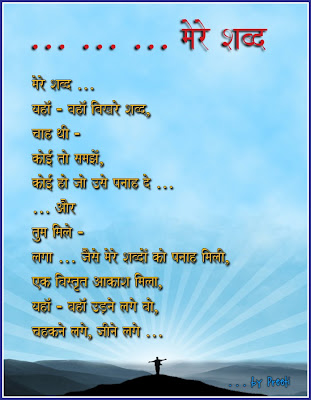 ... ... ... मेरे शब्द
मेरे शब्द ...
यहाँ - वहाँ बिखरे शब्द,
चाह थी -
कोई तो समझें,
कोई हो जो उसे पनाह दे ...
... और
तुम मिले -
लगा ... जैसे मेरे शब्दों को पनाह मिली,
एक विस्तृत आकाश मिला,
यहाँ - वहाँ उड़ने लगे वो,
चहकने लगे, जीने लगे ...
... by Preeti